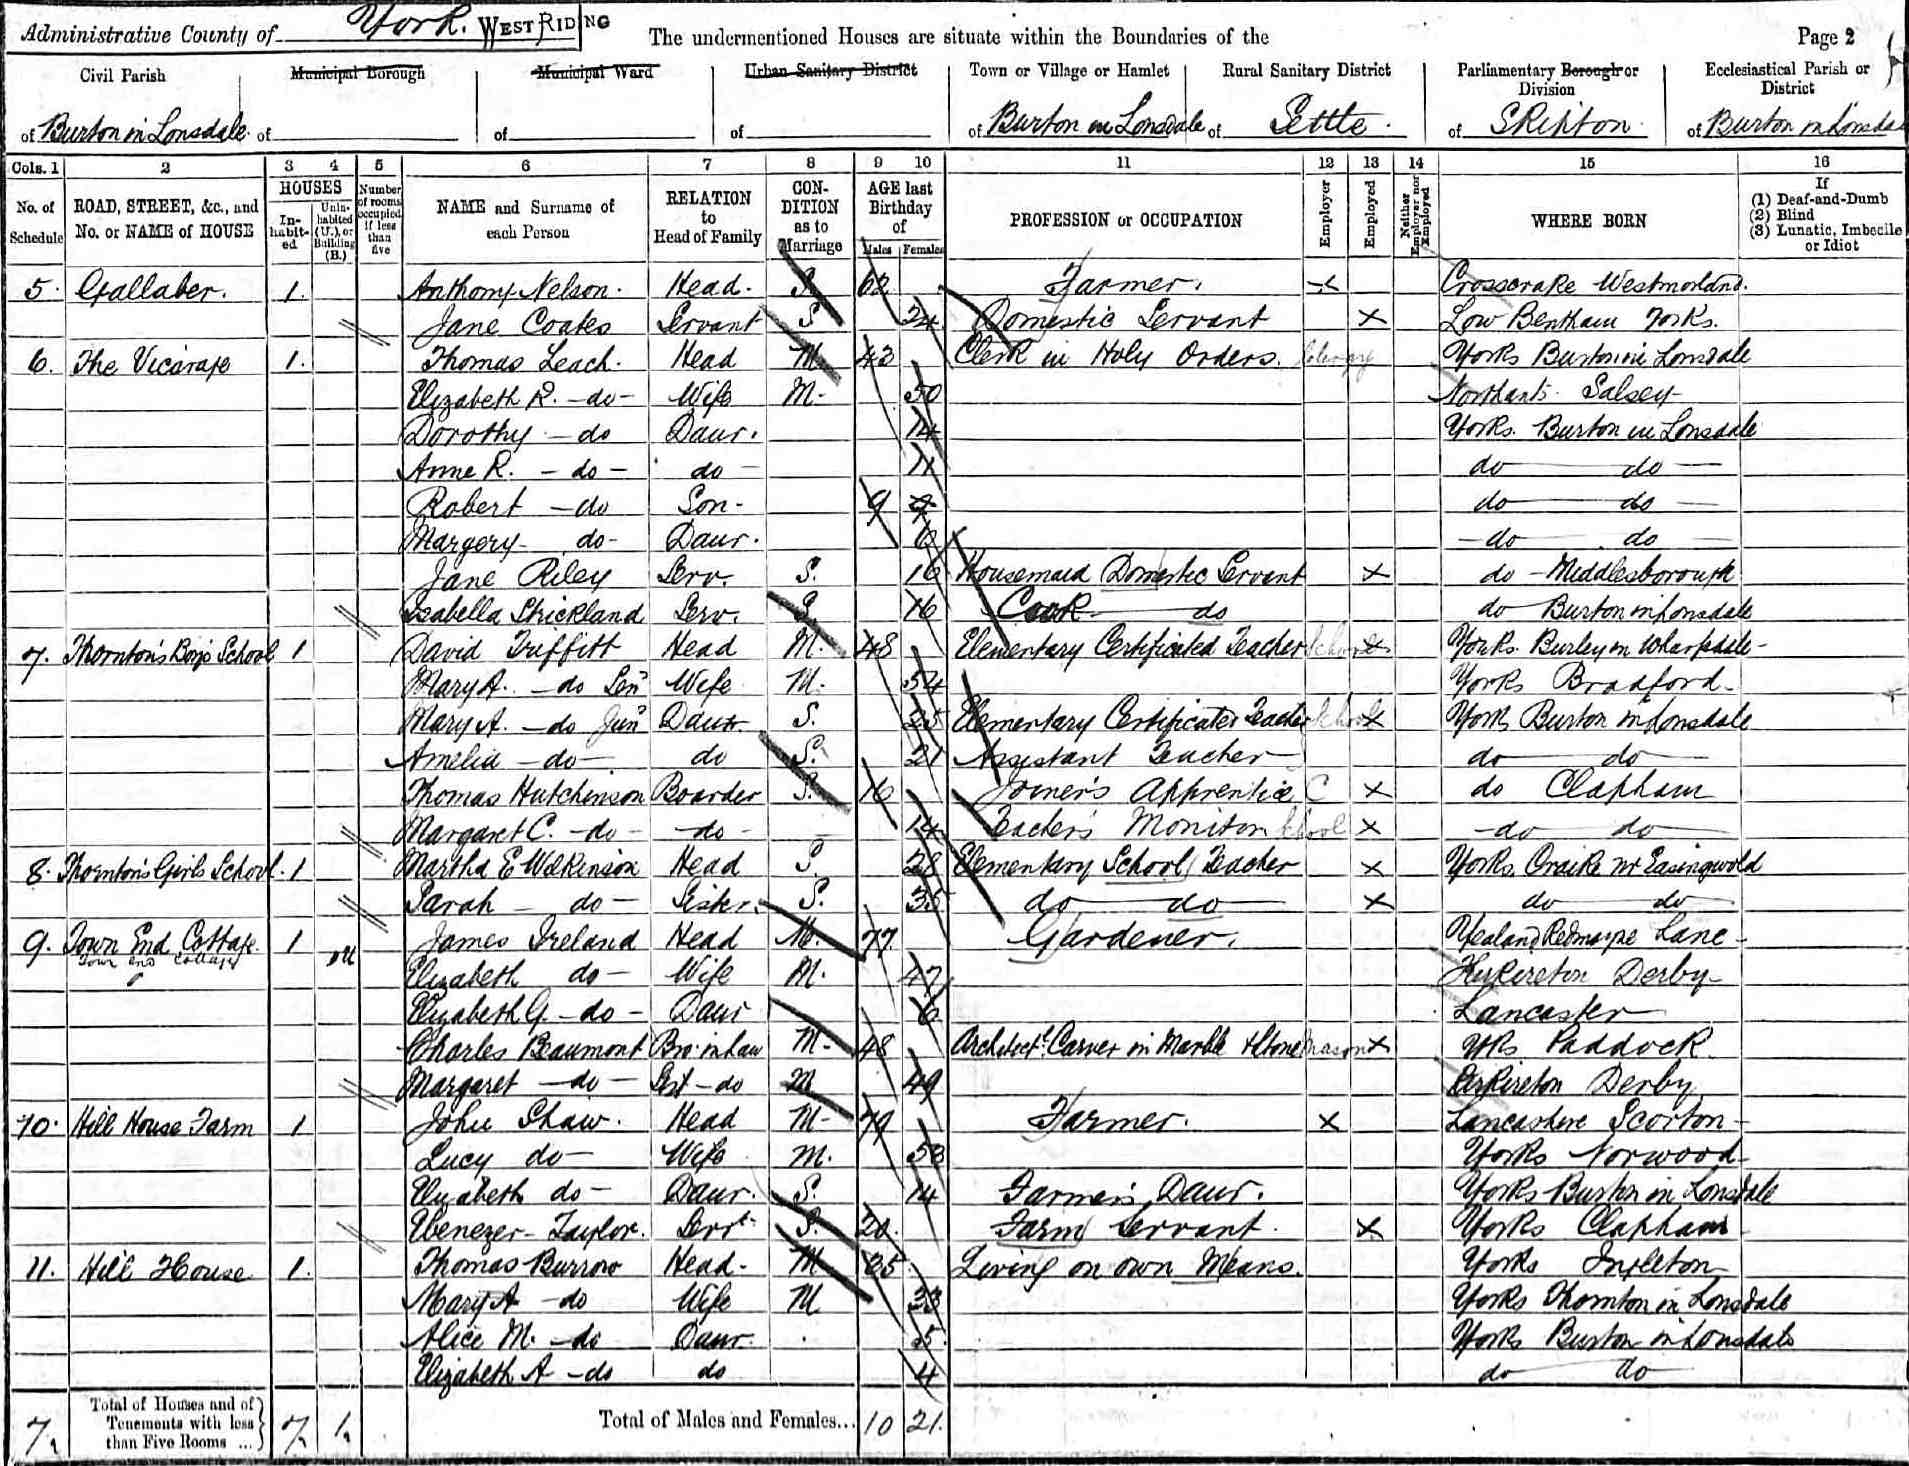 Administrative County of York. WEST RIDING The undermentioned Houses are situate within the Boundaries of the Page 2
Civil Parish Municipal Borough Municipal Ward Urban Sanitary District Town or Village or Hamlet Rural Sanitary District Parliamentary Borough or Division Ecclesiastical Parish or District
of Burton in Lonsdale of of of of Burton in Lonsdale of Settle. of Skipton. of Burton in Lonsdale
Cols. 1 2 3 4 5 6 7 8 9 10 11 12 13 14 15 16
No. of Schedule ROAD, STREET, &c., and No. or NAME of HOUSE HOUSES Inhabited Uninhabited (U.), or Building (B.) Number of rooms occupied if less than five NAME and Surname of each Person RELATION to Head of Family CONDITION as to Marriage AGE last Birthday of Males Females PROFESSION or OCCUPATION Employer Employed Neither Employer nor Employed WHERE BORN If (1) Deaf-and-Dumb (2) Blind (3) Lunatic, Imbecile or Idiot
5. Gallaber. 1. Anthony Nelson. Head. S. 62 Farmer. x Crosscrake Westmorland.
Jane Coates Servant S 24 Domestic Servant x Low Bentham Yorks.
6. The Vicarage 1. Thomas Leach. Head M 43 Clerk in Holy Orders. Clergy Yorks Burton in Lonsdale
Elizabeth R. -do- Wife M- 50 Northants. Salsey
Dorothy - do Daur. 14 Yorks. Burton in Lonsdale
Anne R. - do - do - 11 do do -
Robert - do Son - 9 do do -
Margery do- Daur. 6 - do do -
Jane Riley Serv. S. 16 Housemaid Domestic Servant x do - Middlesborough
Isabella Strickland Serv. S. 16 Cook do do Burton in Lonsdale
7. Thornton's Boys School 1 David Triffitt Head M. 48 Elementary Certificated Teacher School x Yorks. Burley in Wharfdale -
Mary A. - do Senr Wife M. 54 Yorks Bradford -
Mary A. - do Junr Daur. S. 25 Elementary Certificated Teacher School x York Burton in Lonsdale
Amelia - do - do S. 21 Assistant Teacher do do
Thomas Hutchinson Boarder S. 16 Joiner's Apprentice C x do Clapham
Margaret C. - do - do - 14 Teacher's Monitor School x - do do
8. Thornton's Girls School. 1 Martha E Wilkinson Head S. 28 Elementary School Teacher x Yorks. Craike nr Easingwold
Sarah - do - Sister S. 35 do do x do do
9. Town End Cottage. 1 James Ireland Head M. 77 Gardener. Yealand Redmayne Lanc -
Town End Cottage
Elizabeth do - Wife M. 47 Kirkireton Derby -
Elizabeth G. - do - Daur 6 Lancaster
Charles Beaumont Bro. in law M - 48 Architectl. Carver in Marble & Stone Mason x Yks. Paddock
Margaret - do - Sist - do M 49 Kirkireton Derby
10. Hill House Farm 1 John Shaw. Head M - 79 Farmer. x Lancashire Scorton -
Lucy do - Wife M. 53 Yorks Norwood -
Elizabeth do - Daur. S. 14 Farmer's Daur. Yorks Burton in Lonsdale
Ebenezer - Taylor. Servt. S. 20. Farm Servant. x Yorks Clapham -
11. Hill House 1. Thomas Burrow Head - M 35 Living on own Means. Yorks Ingleton
Mary A - do Wife M 33 Yorks Thornton in Lonsdale
Alice M. - do Daur. 5. Yorks Burton in Lonsdale
Elizabeth A - do do 4 do do
7 Total of Houses and of Tenements with less than Five Rooms ... 7 1 Total of Males and Females... 10 21.